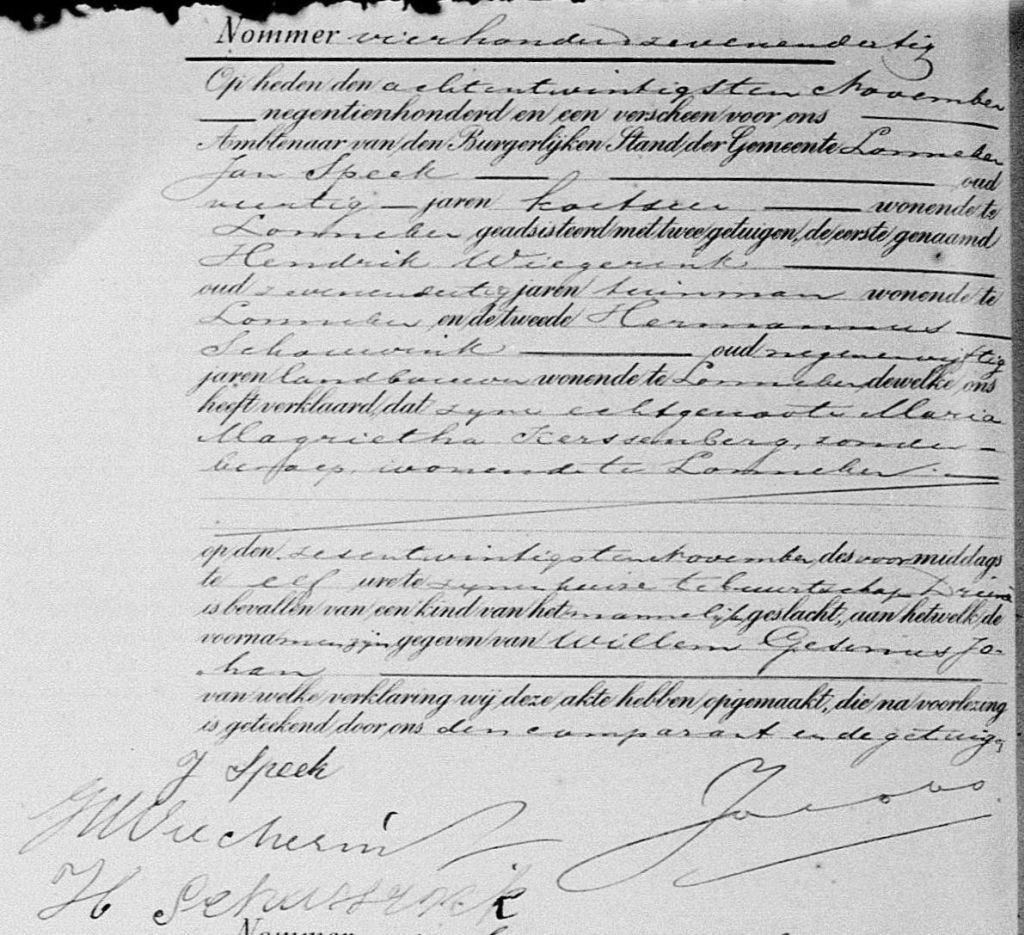 Nommer vierhonderd zevenendertig
Op heden den achtentwintigsten November
negentienhonderd en een verscheen voor ons
Ambtenaar van den Burgerlijken Stand der Gemeente Lonneker
Jan Speek oud
jaren koetsier wonende te
Lonneker geadsisteerd met twee getuigen, de eerste genaamd
Hendrik Wiegerink
oud zevenendertig jaren tuinman wonende te
Lonneker en de tweede Hermannus
oud negenenvijftig
jaren landbouwer wonende te Lonneker dewelke ons
heeft verklaard, dat zyne echtgenoote Maria
Magrietha Kerssenberg, zonder
beroep, wonende te Lonneker.
op den zesentwintigsten November, des voormiddags
te elf ure te zynen huize te buurtschap
is bevallen van een kind van het mannelijk geslacht, aan hetwelk de
voornamen zijn gegeven van Willem Gesinus Jo-
han
van welke verklaring wij deze akte hebben opgemaakt, die na voorlezing
is geteekend door ons den comparant en de getuigen
J Speek
Jacobs.
H
Nommer